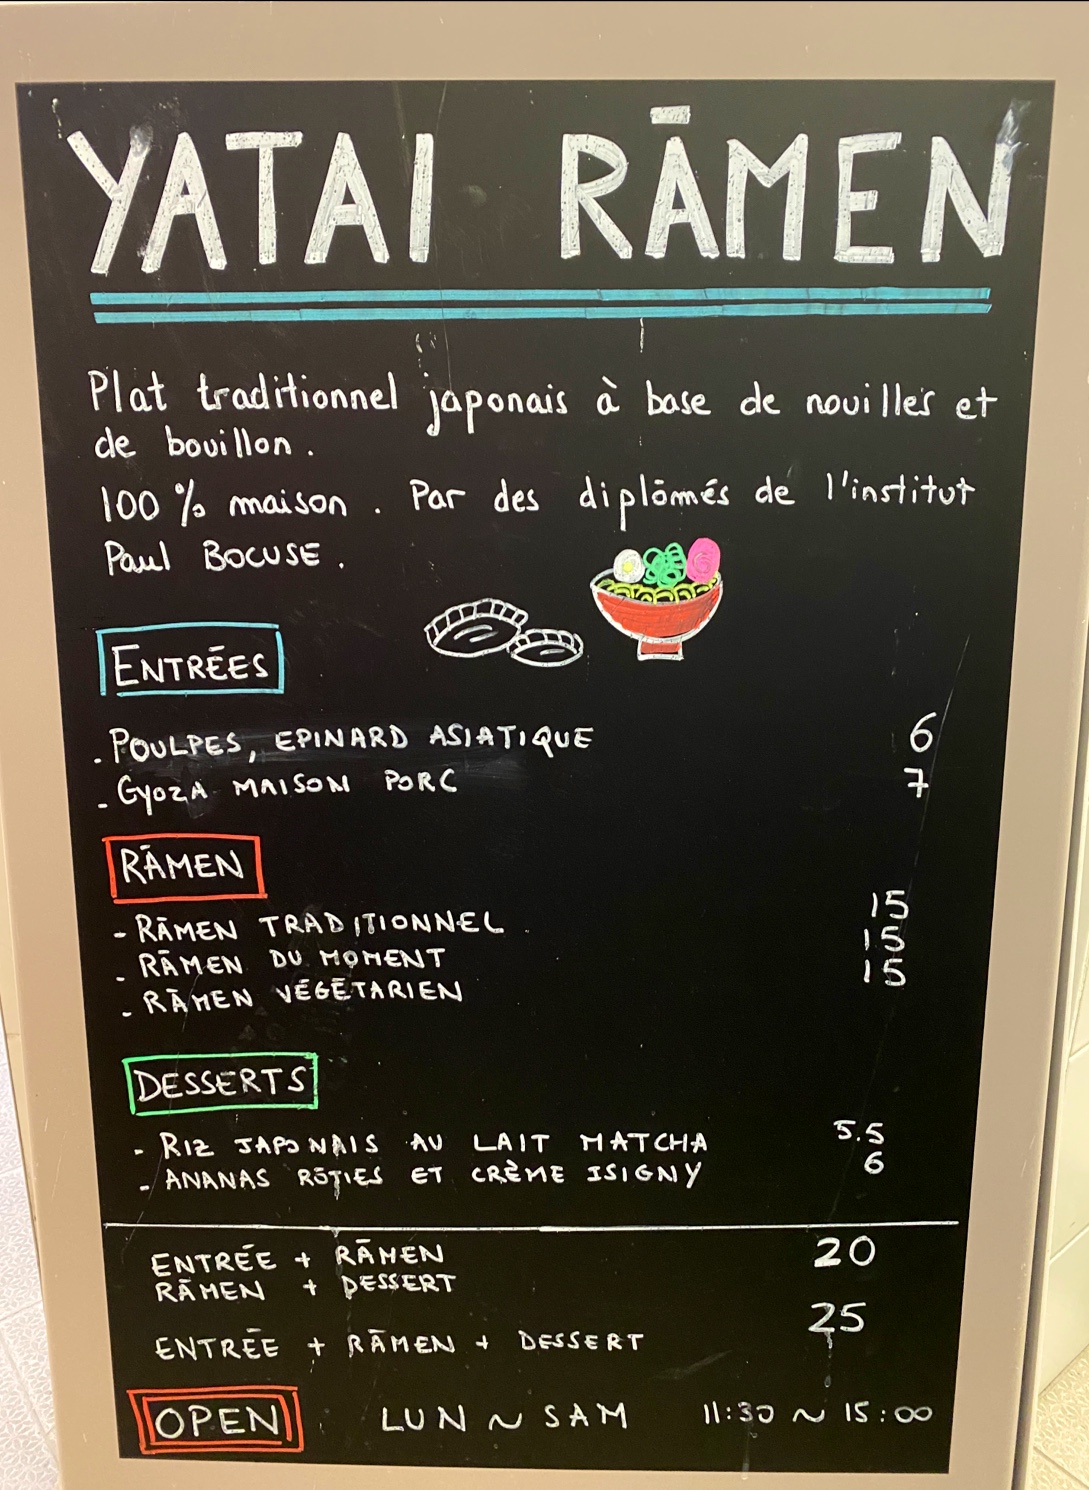 YATAI RĀMEN
Plat traditionnel japonais à base de nouilles et
de bouillon.
100% maison. Par des diplômés de l'institut
Paul BOCUSE.
ENTRÉES
. POULPES, EPINARD ASIATIQUE 6
- GYOZA MAISON PORC 7
RĀMEN
- RĀMEN TRADITIONNEL 15
- RĀMEN DU MOMENT 15
- RĀMEN VÉGÉTARIEN 15
DESSERTS
- RIZ JAPONAIS AU LAIT MATCHA 5.5
- ANANAS RÔTIES ET CRÈME ISIGNY 6
ENTRÉE + RĀMEN 20
RĀMEN + DESSERT
ENTRÉE + RĀMEN + DESSERT 25
OPEN LUN ~ SAM 11:30 ~ 15:00